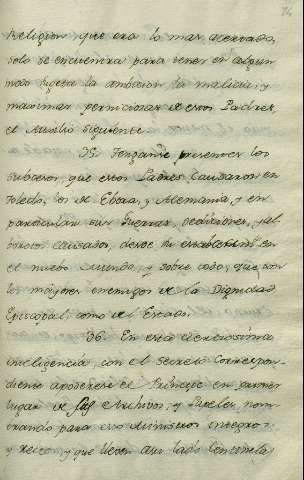 Religion que era lo mas acertado,
solo se encuentra para tener en algun
modo sugeta la ambicion, la malicia, y
maximas perniciosas de estos Padres,
el Auxilio siguiente.
35. Tenganse presentes los
sucesos, que estos Padres causaron en
Toledo, los de Ebora, y Alemania, y en
particular sus Guerras, sediciones, y al
borotos causados, desde su establecim.to en
el nuebo mundo, y sobre todo, que son
los mayores enemigos de la Dignidad
Episcopal, como de el Estado.
36. En esta ciertisima
inteligencia, con el secreto correspon-
diente apoderese el Principe en primer
lugar de sus Archivos, y Papeles, nom
brando para esto Ministros integros,
y rectos, y que lleven a su lado